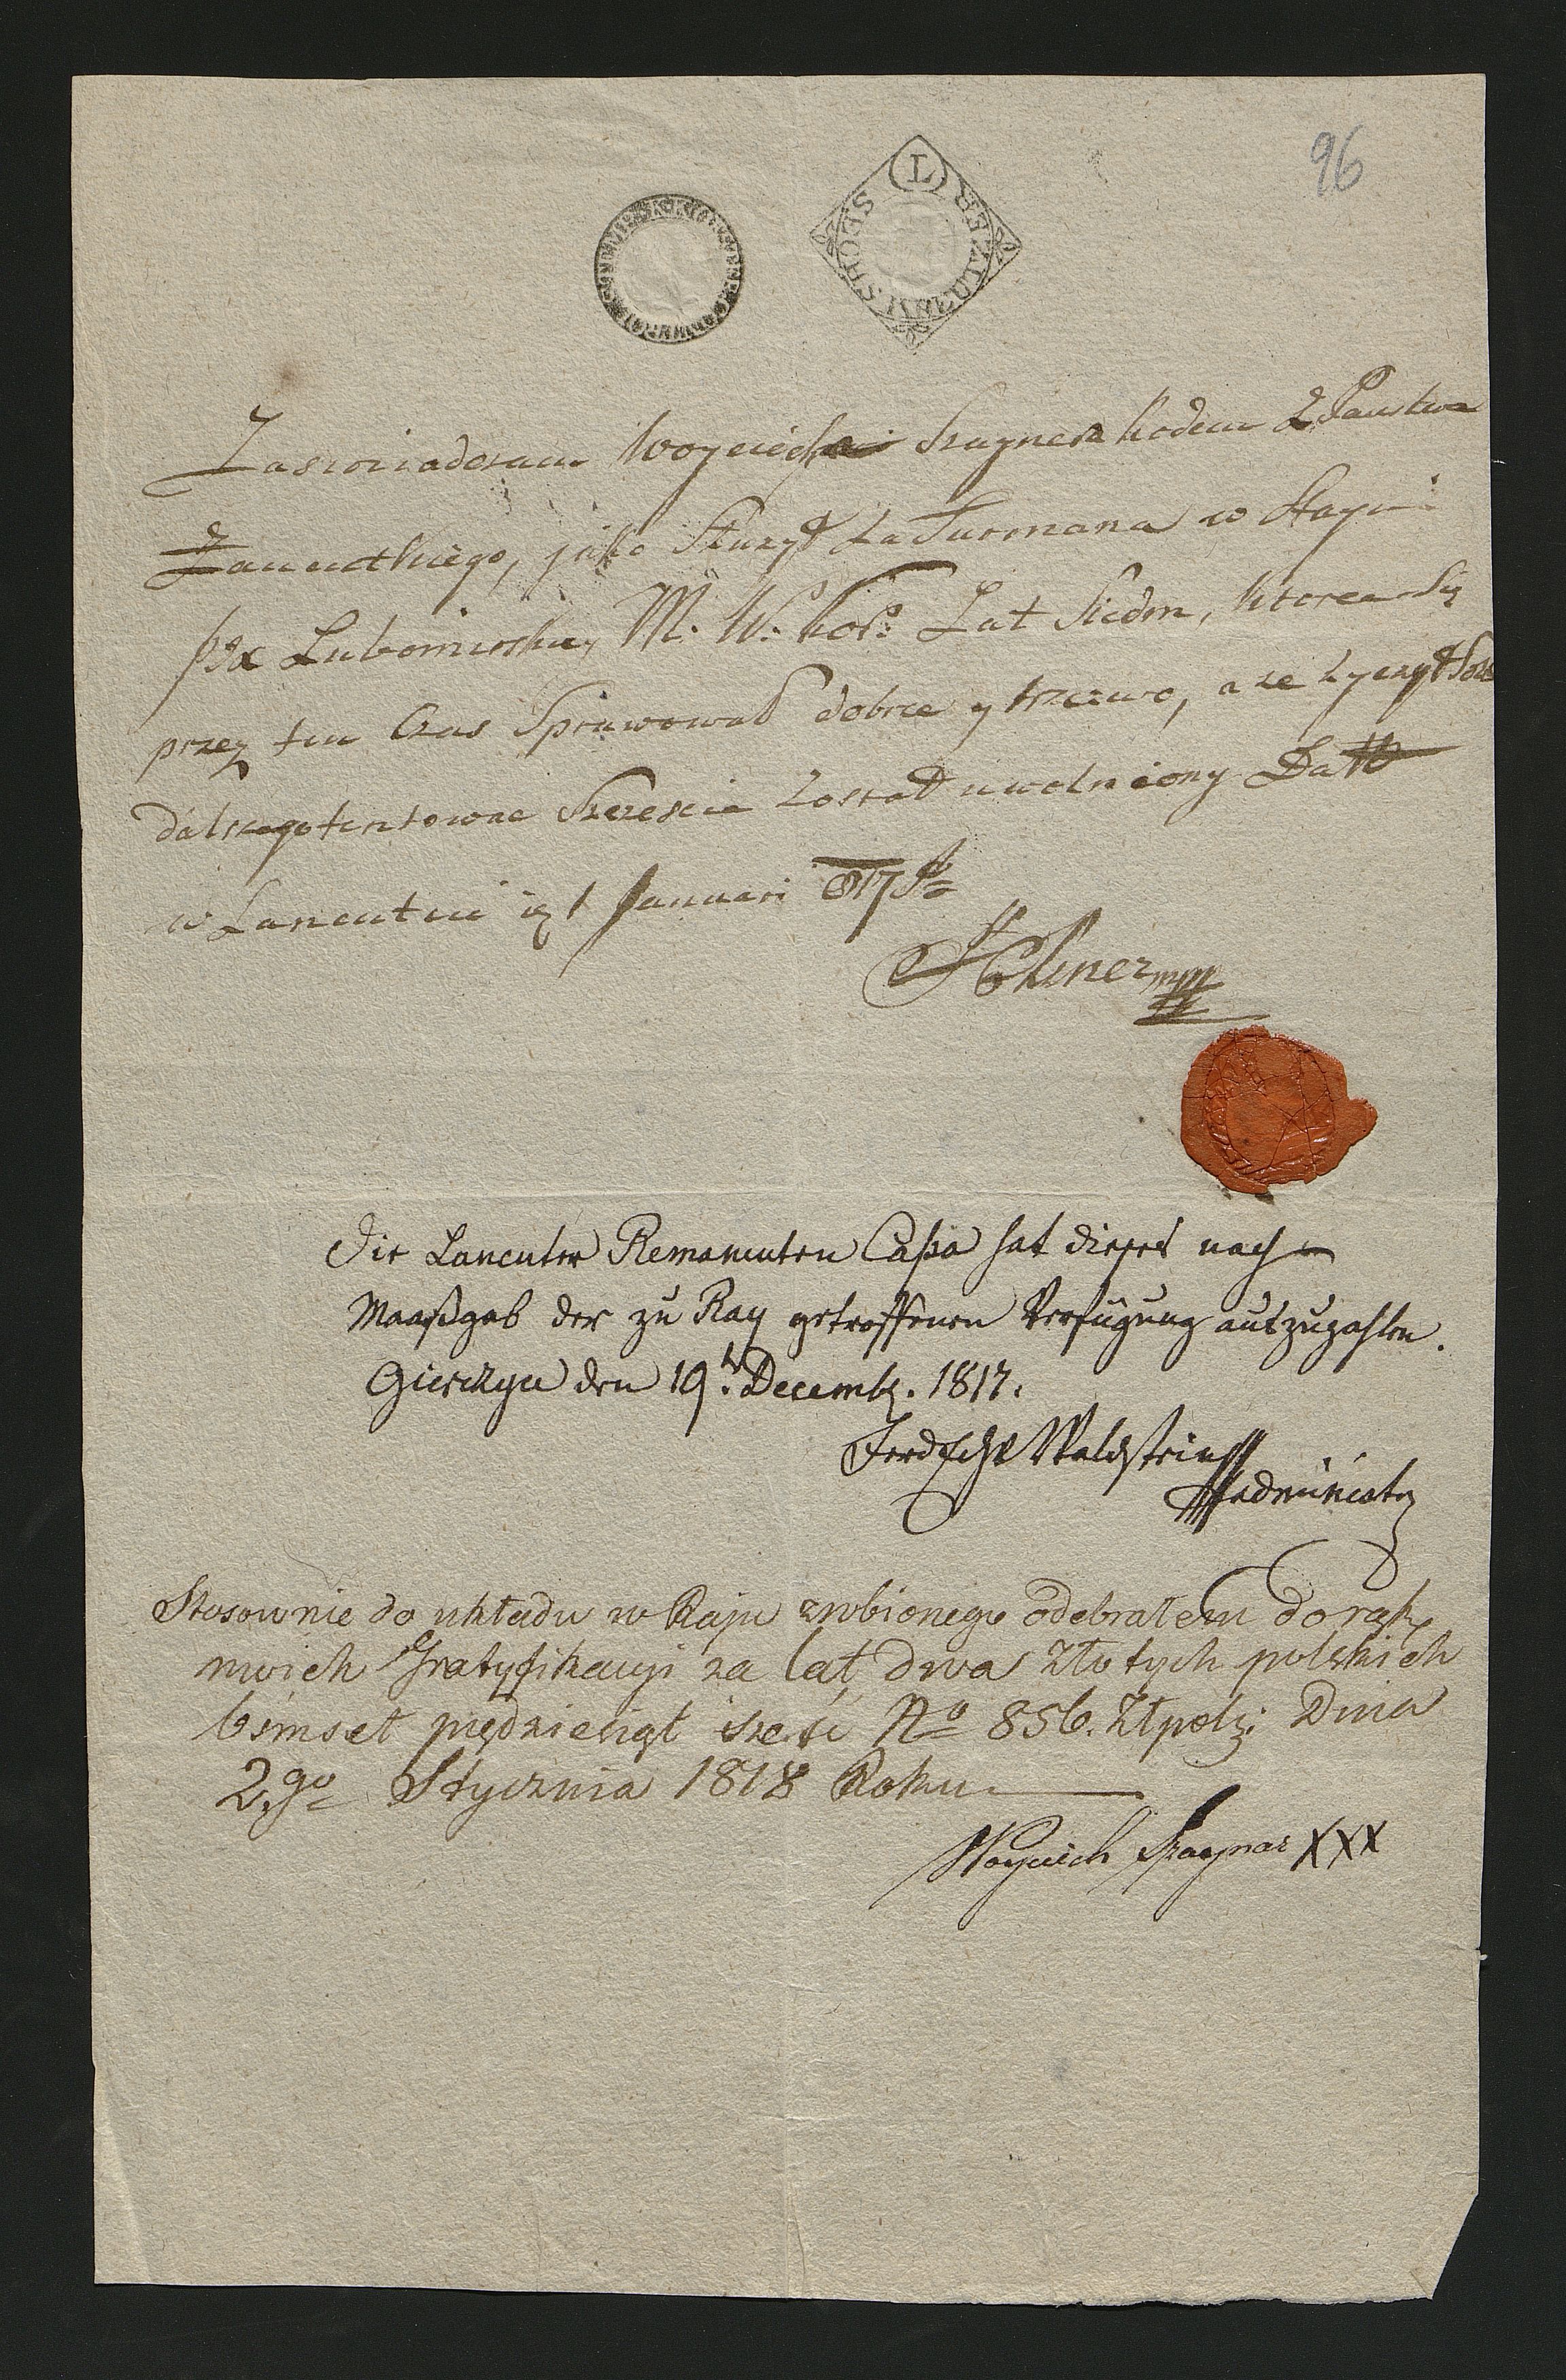 96
SECHS KREUZER
Zaswiadczam Woyciech Szayner Rodem Z Panstwa
Łancutkiego, jako Służył Za Furmana w Stayni
Lubomirsky M. W. Kor: Lat Siedm, ktoren Się
przez ten Czas Sprawował dobrze y trzezwo, a ze Zyczył Sobie
dalszego tentowac Szczescie Został uwolniony Datt
w Lancutcie 1 Januari 817
Die Lancuter Remanenten Cassa hat dieses nach
Maaßgab der zu Ray getroffenen Verfügung auszuzahlen.
den 19t. Decemb. 1817.
Ferd Waldstein
Administr
Stosownie do układu w Raju zrobionego odebrałem do rąk
moich Gratyfikacyi za lat dwa złotych polskich
ósmset piędziesiąt sześć No 856. Zł pol: Dnia
2go Stycznia 1818 Roku
Woyciech Szaynar XXX